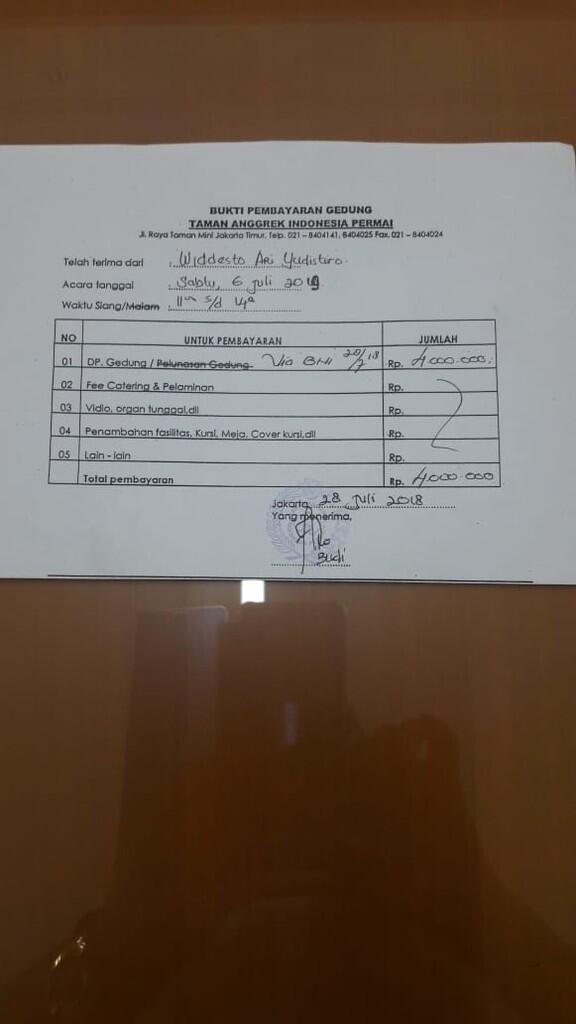 BUKTI PEMBAYARAN GEDUNG
TAMAN ANGGREK INDONESIA PERMAI
Jl. Raya Taman Mini Jakarta Timur. Telp. 021 – 8404141, 8404025 Fax. 021 – 8404024
Telah terima dari : Widdesto Ari Yudistiro.
Acara tanggal : Sabtu, 6 Juli 2019
Waktu Siang/Malam : 11ºº s/d 14ºº
NO UNTUK PEMBAYARAN JUMLAH
01 DP. Gedung / Pelunasan Gedung Via BNI 20/7 18 Rp. 4.000.000,-
02 Fee Catering & Pelaminan Rp.
03 Vidio, organ tunggal,dll Rp.
04 Penambahan fasilitas, Kursi, Meja, Cover kursi,dll Rp.
05 Lain - lain Rp.
Total pembayaran Rp. 4.000.000
Jakarta, 28 Juli 2018
Yang menerima,
Budi